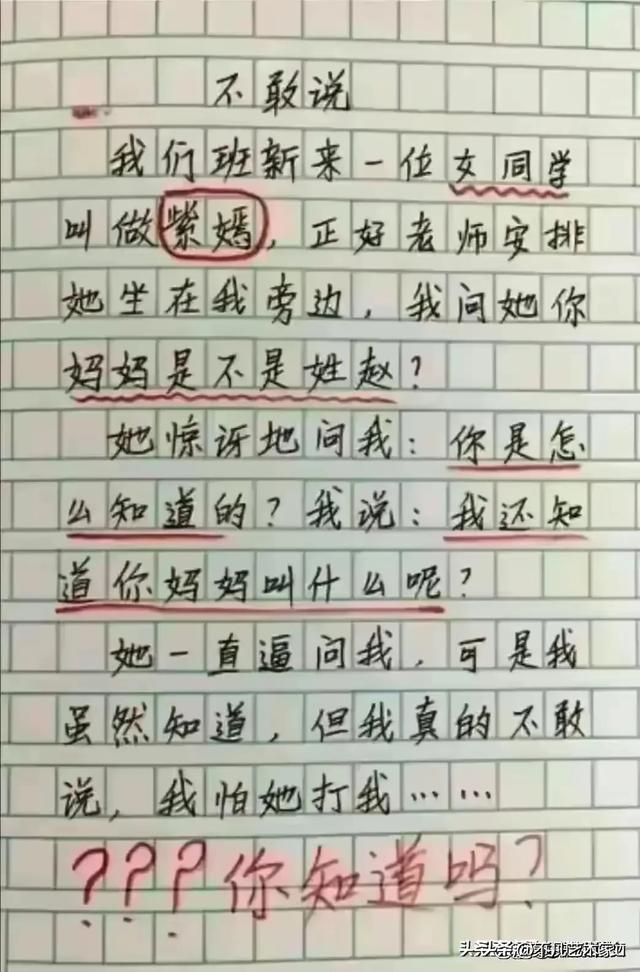 不敢说
我们班新来一位女同学
叫做紫嫣，正好老师安排
她坐在我旁边，我问她你
妈妈是不是姓赵？
她惊讶地问我：你是怎
么知道的？我说：我还知
道你妈妈叫什么呢？
她一直逼问我，可是我
虽然知道，但我真的不敢
说，我怕她打我……
???你知道吗?
头条